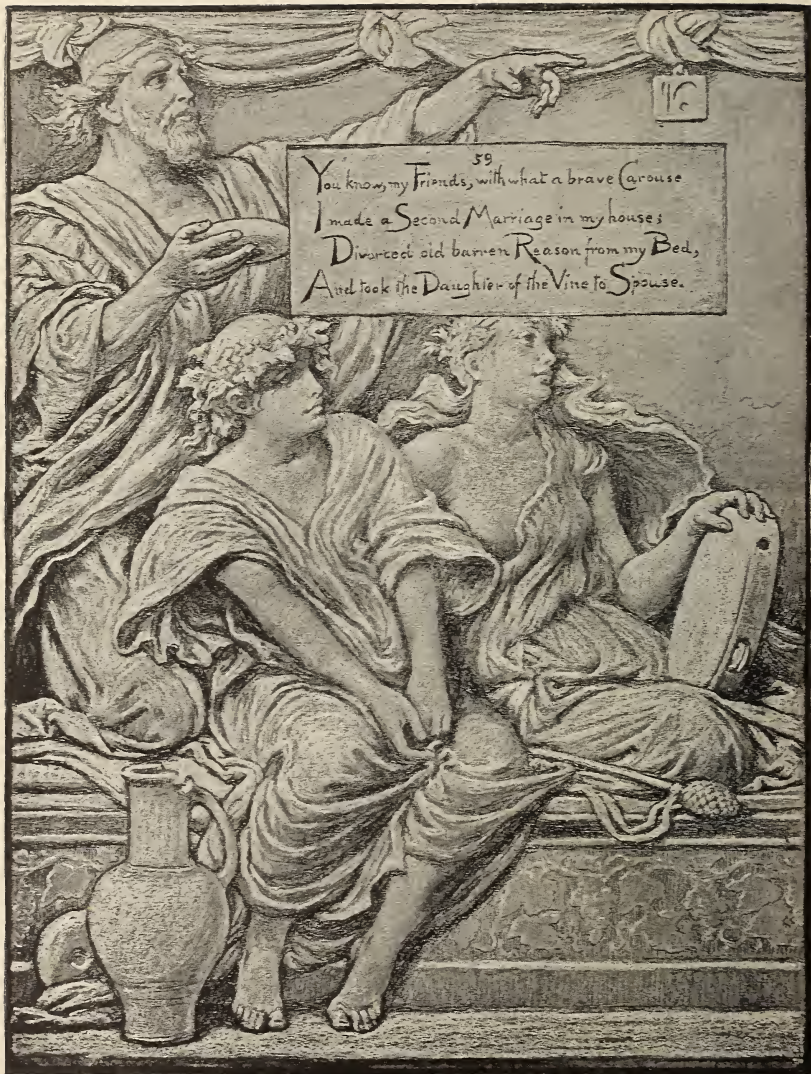 59
You know, my Friends, with what a brave Carouse
I made a Second Marriage in my house;
Divorced old barren Reason from my Bed,
And took the Daughter of the Vine to Spouse.